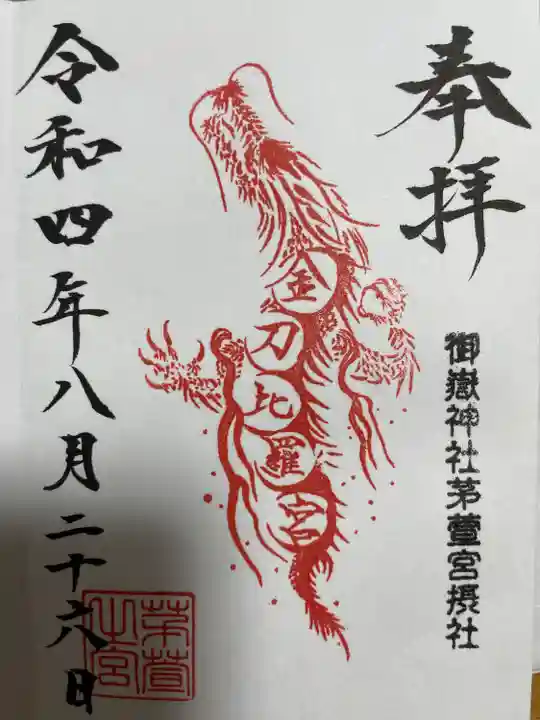 奉拝
御嶽神社茅萱宮摂社
金刀比羅宮
令和四年八月二十六日
茅萱
之宮